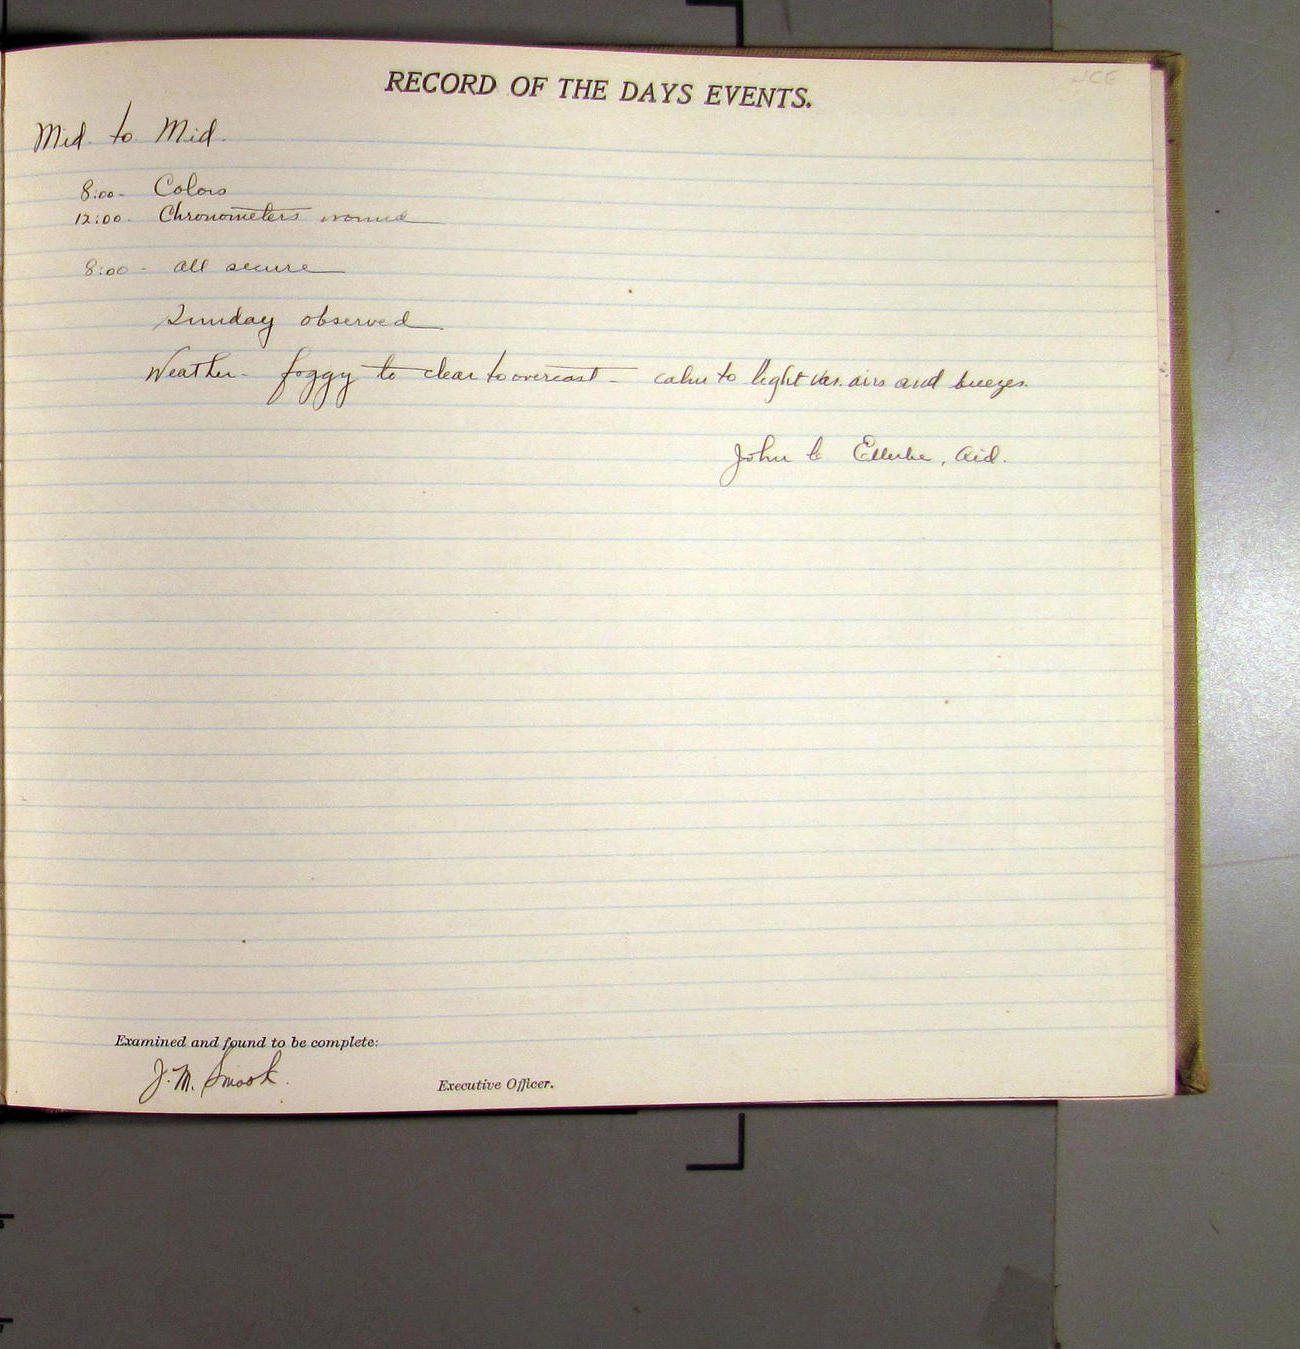 JCE
RECORD OF THE DAYS EVENTS.
Mid. to Mid.
8:00- Colors
12:00- Chronometers wound
8:00- All secure
Sunday observed
Weather- foggy to clear to overcast - calm to light var. airs and breezes.
John C Ellerbe, Aid.
Examined and found to be complete:
J. M. Smook.
Executive Officer.